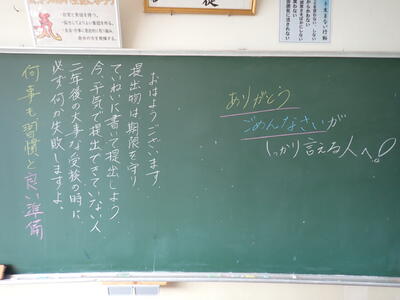 おはようございます。
提出物は期限を守り
ていねいに書いて提出しよう。
今、平気で提出できていない人
二年後の大事な受検の時に
必ず何か失敗しますよ。
何事も習慣と良い準備
ありがとう
ごめんなさいが
しっかり言える人へ!